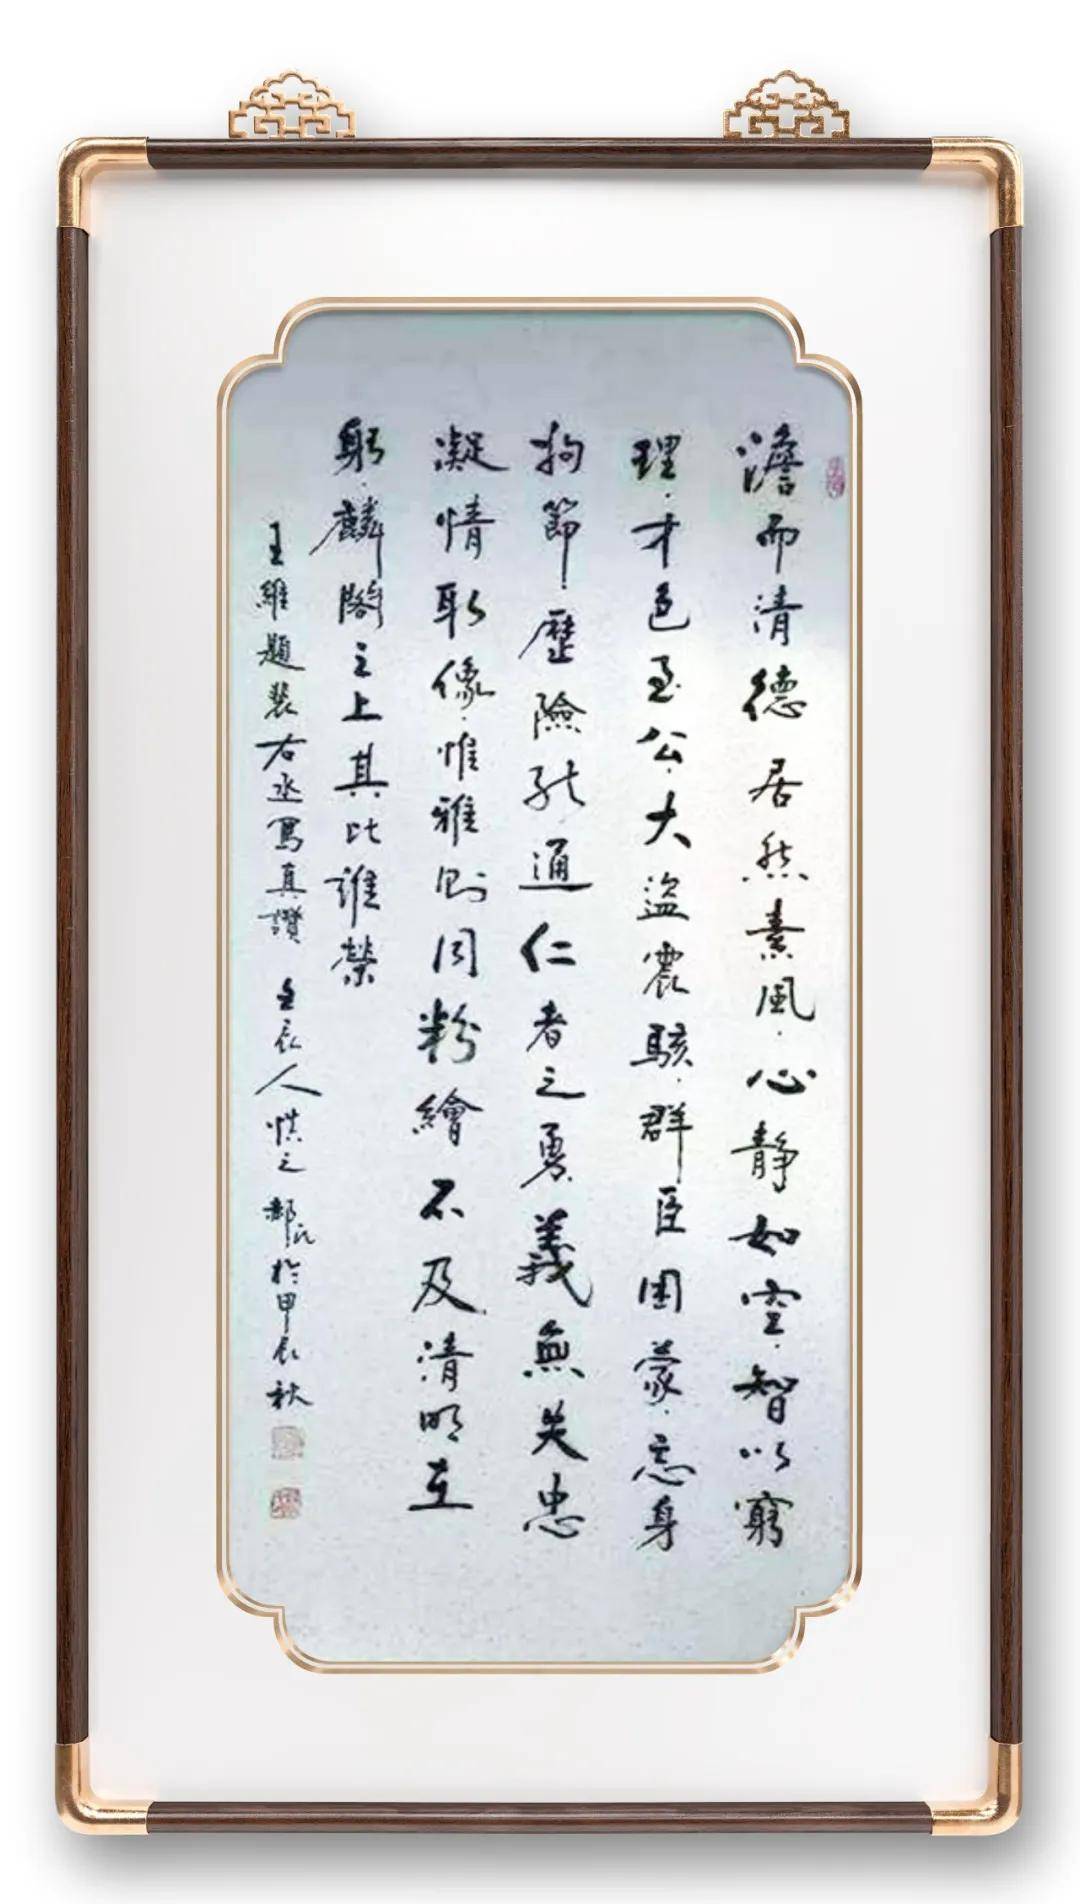 澹而清德居然素風心静如空智以窮
理才色至公大盜震駭群臣困蒙忘身
拘節歷險能通仁者之勇義無失忠
凝情取像惟雅則同粉繪不及清明在
躬麟閣之上其比誰榮
王維題裴右丞寫真讚 壬辰人慎之郝氏於甲辰秋